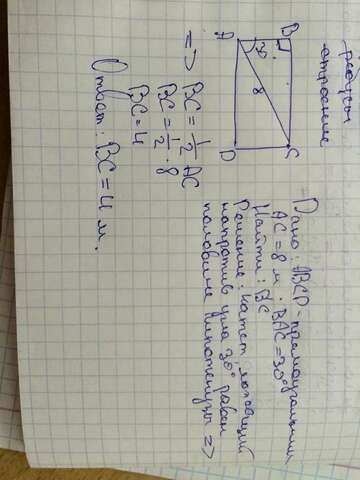 отроение
A B
30°
8
D C
Дано: ABCD - прямоугольник
AC = 8 м. BAC = 30°
Найти: BC
Решение: катет, лежащий
напротив угла 30° равен
половине гипотенузы =>
=> BC = 1/2 AC
BC = 1/2 · 8
BC = 4
Ответ: BC = 4 м.